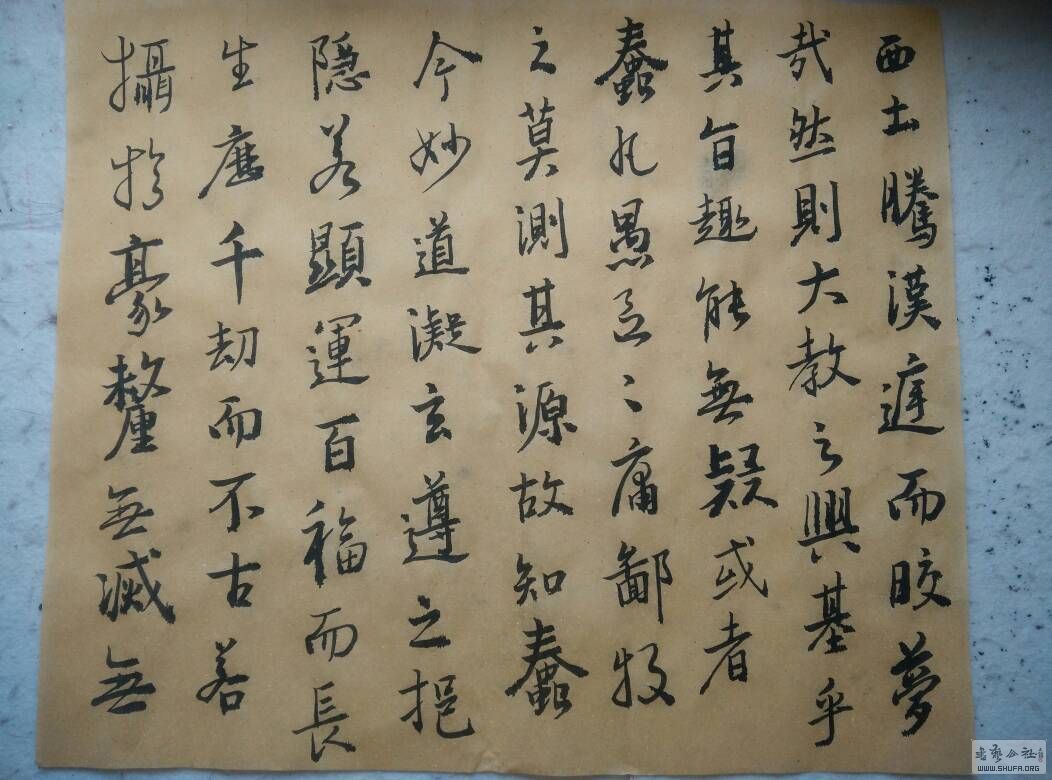 西土騰漢庭而皎夢
哉然則大教之興基乎
其旨趣能無疑或者
蠢凡愚區〻庸鄙投
之莫測其源故知蠢
今妙道凝玄遵之挹
隱若顯運百福而長
生歷千劫而不古若
攝於豪釐無滅無
书艺公社
WWW.SHUFA.ORG